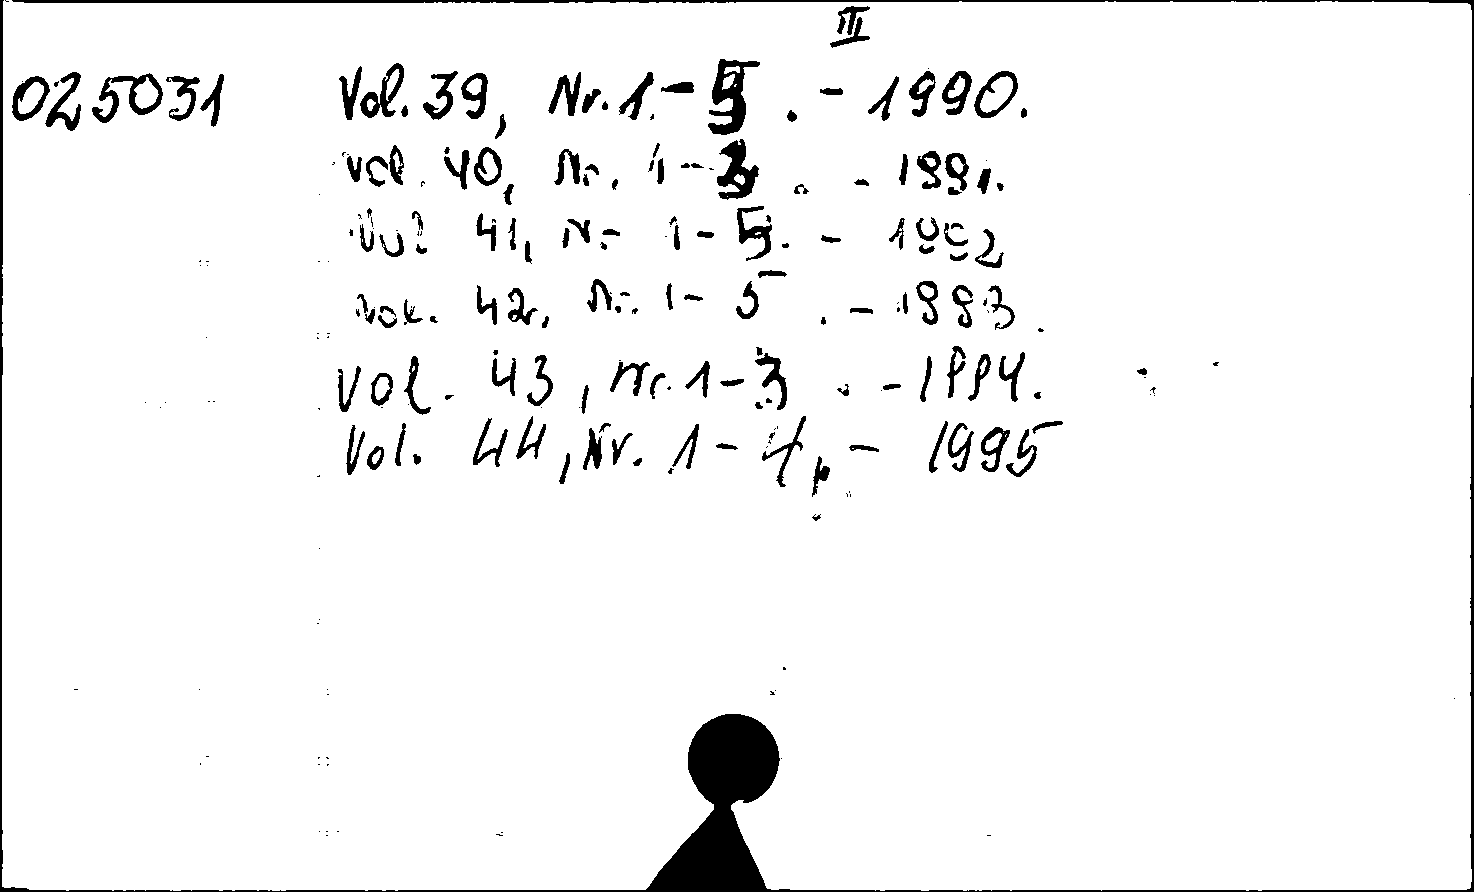 III
025031 Vol. 39, Nr. 1-5. - 1990.
Vol. 40, Nr. 1-3. - 1991.
Vol 41, Nr 1-5. - 1992
Vol. 42, Nr. 1-5. - 1993.
Vol. 43, Nr. 1-3. - 1994.
Vol. 44, Nr. 1-4, - 1995